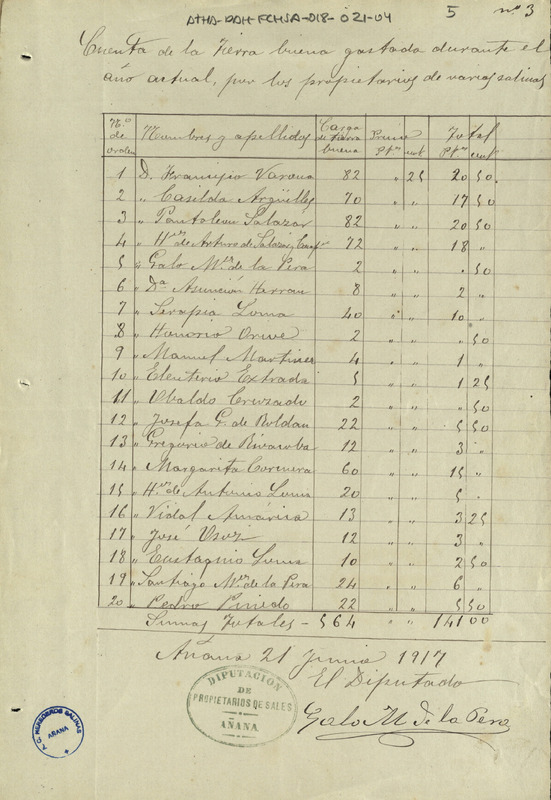 ATHA-DAH-FCHSA-018-021-04
5 nº 3
Cuenta de la Tierra buena gastada durante el
año actual, por los propietarios de varias salinas
N.º de orden Nombres y apellidos Carga de tierra buena Precio Pts cnt Total Pts cnt
1 D. Francisco Varona 82 " 25 20 50.
2 " Casilda Argüelles 70 " " 17 50
3 " Pantaleon Salazar 82 " " 20 50
4 " H.ros de Arturo de Salazar y 72 " " 18 "
5 " Galo M.z de la Pera 2 " " . 50
6 " D.a Asunción Herran 8 " " 2 "
7 " Serapia Loma 40 " " 10 "
8 " Honorio Orive 2 " " " 50
9 " Manuel Martinez 4 " " 1 "
10 " Eleuterio Extrada 5 " " 1 25
11 " Ubaldo Cruzado 2 " " " 50
12 " Josefa G. de Roldan 22 " " 5 50
13 " Gregorio de Bivacoba 12 " " 3 "
14 " Margarita Corcuera 60 " " 15 "
15 " H.ros de Antonio Loma 20 " " 5 "
16 " Vidal Amárica 13 " " 3 25
17 " José 12 " " 3 "
18 " Eustaquio Loma 10 " " 2 50
19 " Santiago M.z de la Pera 24 " " 6 "
20 " Pedro Pinedo 22 " " 5 50
Sumas Totales - 564 " " 141 00
Añana 21 Junio 1917
El Diputado
Galo M. de la Pera
DIPUTACION
DE
PROPIETARIOS DE SALES
AÑANA
T. C. HEREDEROS SALINAS
AÑANA